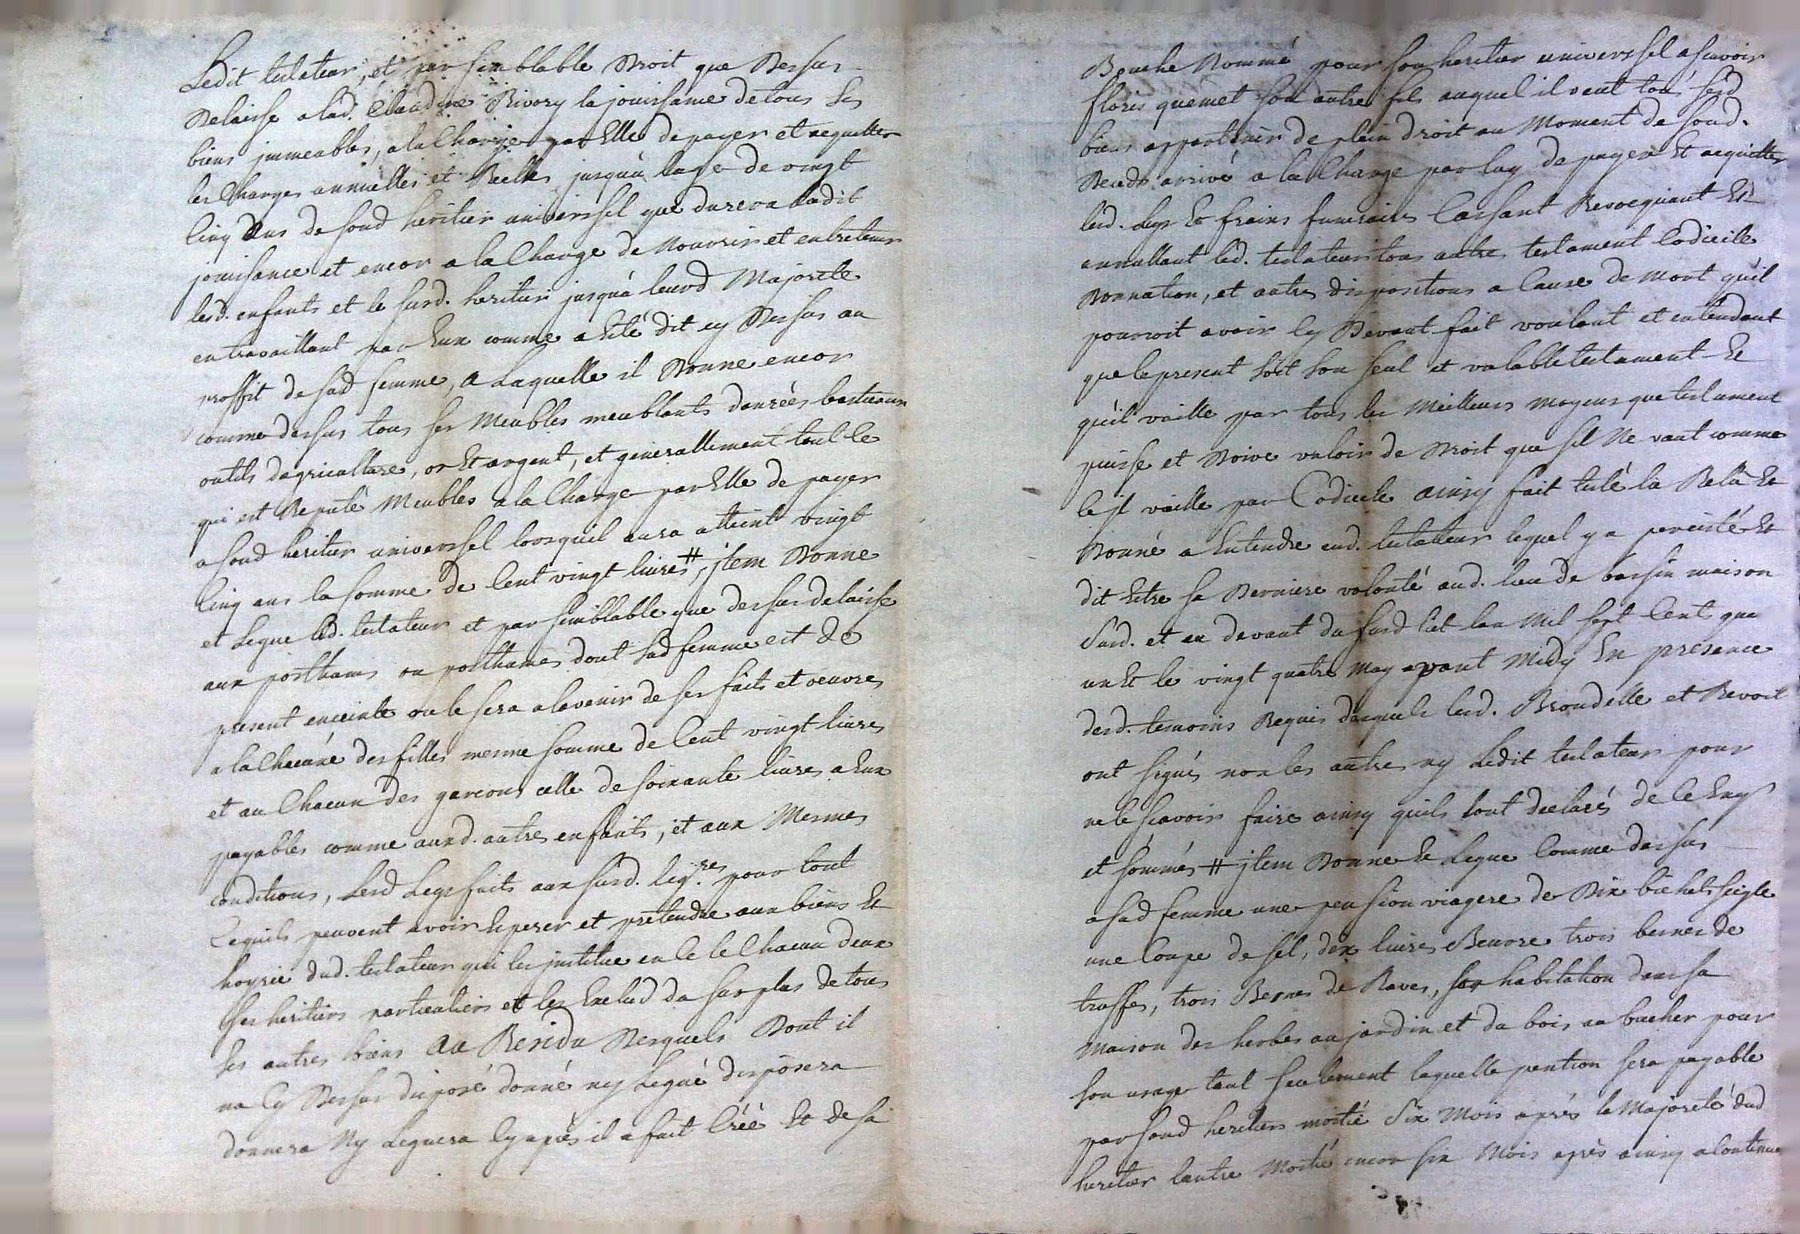 Ledit testateur, et par semblable Droit que Dessus
Delaisse a lad. Claudine Rivory la jouissance de tous ses
biens immeubles, a la Charge par Elle de payer et acquitter
les Charges annuelles et Reelles jusqu'à lage de vingt
Cinq ans de sond heritier universsel que durera ladit
jouissance et encor a la Charge de Nourrir et entretenir
lesd. enfants et le susd. heritier jusqu'a leurd Majorete
en travaillant par Eux comme a Eté dit cy Dessus au
proffit de sad femme, a Laquelle il Donne encor
comme dessus tous ses Meubles meublants danrées bestiaux
outils dagriculture, or Et argent, et generallement tout ce
qui est Reputé Meubles a la Charge par Elle de payer
a sond heritier universsel lorsquil aura atteint vingt
Cinq ans la somme de Cent vingt livres #, jtem Donne
et Legue led. testateur et par semblable que dessus delaisse
aux posthume ou posthumes dont sad femme est de
present enceinte ou le sera a lavenir de ses faits et oeuvres
a la Chacune des filles mesme somme de Cent vingt livres
et au Chacun des garcons celle de soixante livres a Eux
payables comme auxd. autres enfants, et aux Mesmes
conditions, Lesd Legs faits aux susd. leg.res pour tout
Cequils peuvent avoir Esperer et prétendre aux biens Et
hoyrie dud. testateur qui les jnstitue en Ce le Chacun deux
ses heritiers particuliers et les Exclud du surplus de tous
ses autres biens Au Residu Desquels Dont il
na Cy Dessus disposé donné ny Legué disposera
donnera Ny Leguera Cy après il a fait Créé Et de sa
Bouche Nommé pour son heritier universsel ascavoir
floris quemet son autre fils auquel il veut tous sesd
biens appartenir de plein droit au Moment de sond.
Deceds arrivé a la Charge par luy de payer Et acquitter
lesd. legs Et frains funeraires Cassant Revocquant Et
annullant led. testateur tous autres testament Codicile
Donnation, et autres dispositions a Cause de mort qu'il
pourroit avoir Cy Devant fait voulant et entendant
que le present soit son seul et valable testament Et
qu'il vaille par tous les Meilleurs moyens que testament
puisse et Doive valoir de Droit que sil Ne vaut comme
tel il vaille par Codicile ainsy fait testé la Relû Et
Donné a Entendre aud. testateur lequel y a percisté Et
dit Estre sa Derniere volonté aud. lieu de maison
Susd. et au devant du susd lict lan Mil sept Cent que
un Et le vingt quatre May avant Midy En presence
desd. temoins Requis desquels lesd. Brondelle et Revoit
ont signés non les autres ny Ledit testateur pour
ne le scavoir faire ainsy quils lont declarés de Ce Enq
et sommés # jtem Donne Et Legue Comme dessus
a sad femme une pension viagere de Dix bichets seigle
une Coupe de sel, dix livres Beurre trois bennes de
truffes, trois Bennes de Raves, son habitation dans sa
Maison des herbes au jardin et du bois au bucher pour
son usage tant seulement laquelle pention sera payable
par sond heritier moitié Six Mois après la Majoreté dud
heritier lautre Moitié encor six Mois après ainsy a Continuer